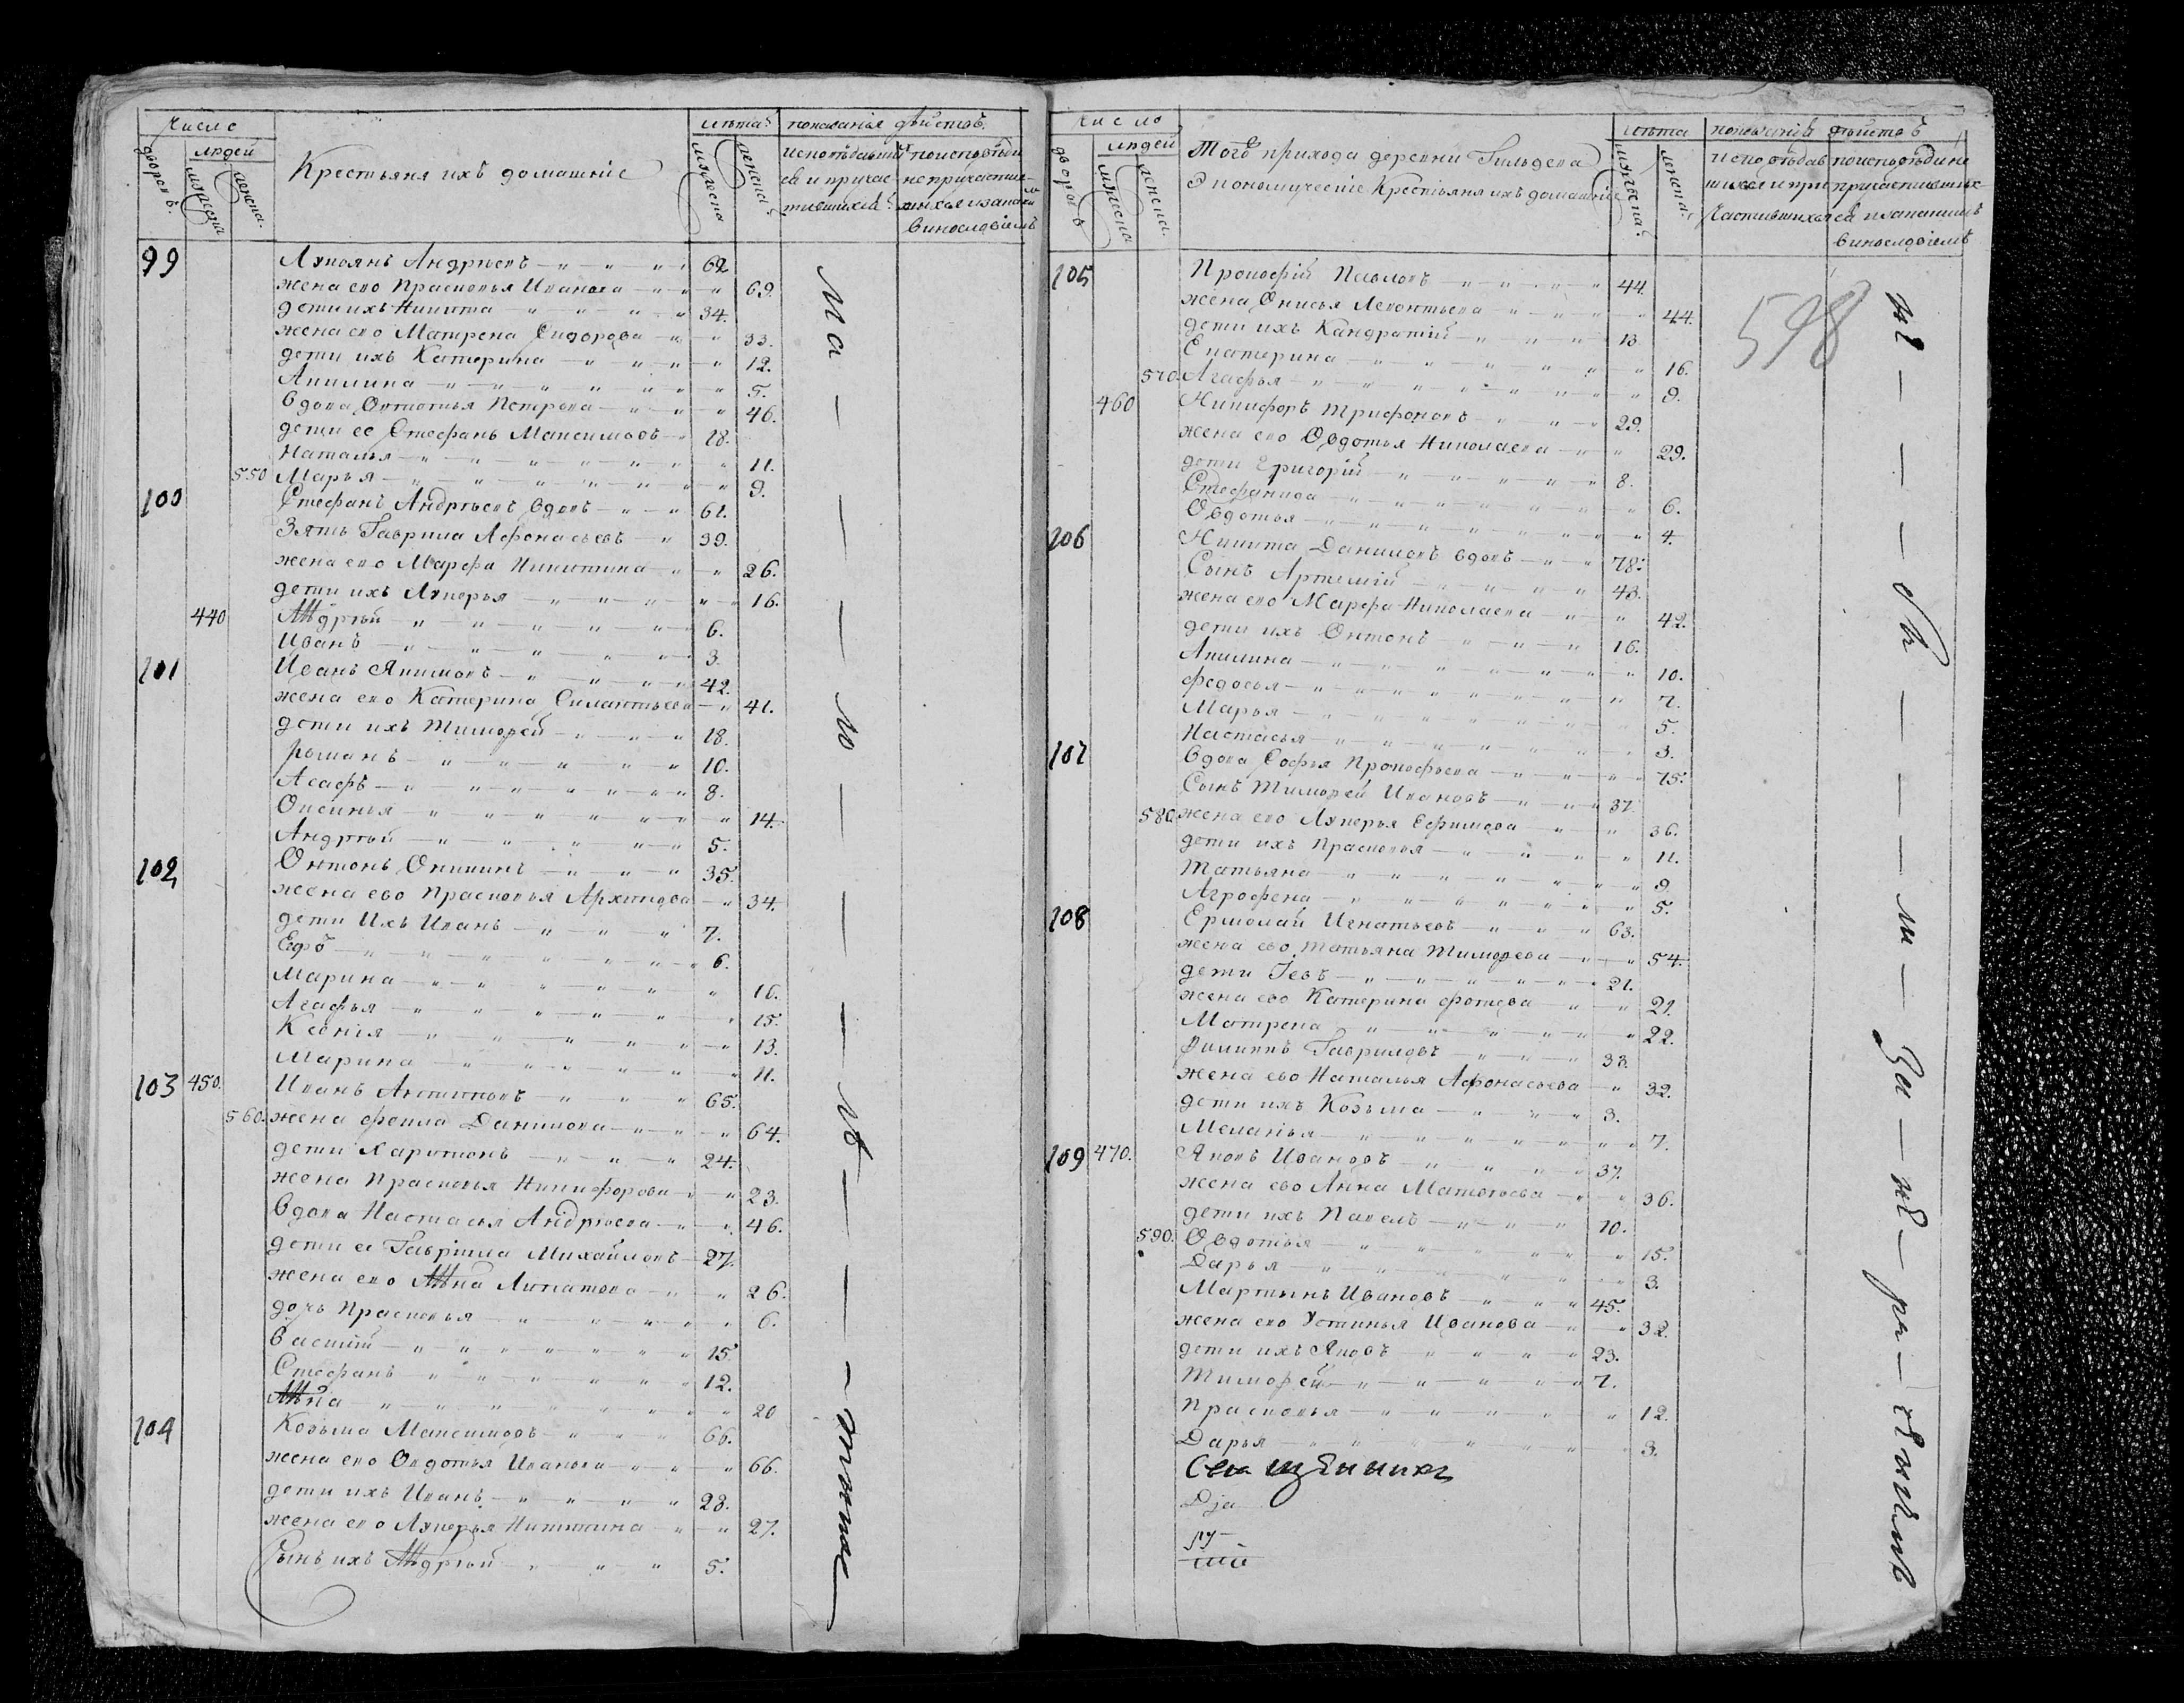 число
людей
дворовъ.
мужеска
женска.
Крестьяня ихъ домашніе
лѣта
мужеска
женска
показанія дѣйствъ.
исповѣдавши
ся и причас
тившихся
по исповѣди
не причастив
шихся и за каки
винословіемъ
99
Лукоянъ Андрѣевъ 62
жена ево Прасковья Иванова 69.
дети ихъ Никита 34.
жена ево Матрена Сидорова 33.
дети ихъ Катерина 12.
Акилина 5.
вдова Овтотья Петрова 46.
дети ее Стефанъ Максимовъ 18.
Наталья 11.
550 Марья 9.
100 Стефанъ Андрѣевъ вдовъ 61.
Зять Гаврила Афонасьевъ 39.
жена ево Марфа Никитина 26.
дети ихъ Лукерья 16.
440 Андрѣй 6.
Иванъ 3.
101 Иванъ Якимовъ 42.
жена ево Катерина Силантьева 41.
дети ихъ Тимофей 18.
романъ 10.
Асафъ 8.
Оксинья 14.
Андрѣй 5.
102 Онтонъ Оникинъ 35.
жена ево Прасковья Архипова 34.
дети Ихъ Иванъ 7.
Ефо 6.
Марина 16.
Агафья 15.
Ксенія 13.
Марина 11.
103 450. Иванъ Антиповъ 65.
560. жена фекла Данилова 64.
дети Харитонъ 24.
жена Прасковья Никифорова 23.
Вдова Настасья Андрѣева 46.
дети ее Гаврила Михайловъ 27.
жена ево Анна Липатова 26.
дочь Прасковья 6.
Василій 15.
Стефанъ 12.
Анна 20
104 Козьма Максимовъ 66.
жена ево Овдотья Иванова 66.
дети ихъ Иванъ 28.
жена ево Лукерья Никитина 27.
Сынъ ихъ Андрѣй 5.
число
людей
дворовъ
мужеска
женска.
Тогѡ прихода деревни Гильдева
Экономическіе Крестьяня ихъ домашніе
лѣта
мужеска.
женска.
показанія дѣйствъ
исповѣдав
шихся и при
частившихся
по исповѣди не
причастившихся
и за какимъ
винословіемъ
598
105 Прокофій Павловъ 44.
жена Онисья Леонтьева 44.
дети ихъ Кандратій 13
Екатерина 16.
570. Агафья 9.
460 Никифоръ Трифоновъ 29.
жена ево Овдотья Николаева 29.
дети Григорій 8.
Стефанида 6.
Овдотья 4.
106 Никита Даниловъ вдовъ 78.
Сынъ Артемій 43.
жена ево Марфа Николаева 42.
дети ихъ Онтонъ 16.
Акилина 10.
федосья 7.
Марья 5.
Настасья 3.
107 Вдова Софья Прокофьева 75.
Сынъ Тимофей Ивановъ 37
580. жена ево Лукерья Ефимова 36.
дети ихъ Прасковья 11.
Татьяна 9.
Агрофена 5.
108 Ермолай Игнатьевъ 63.
жена ево Татьяна Тимофева 54.
дети Іевъ 21.
жена ево Катерина фотева 21.
Матрена 22.
Филипъ Гавриловъ 33.
жена ево Наталья Афонасьева 32.
дети ихъ Козьма 3.
Меланья 7.
109 470. Яковъ Ивановъ 37.
жена ево Анна Матвѣева 36.
дети ихъ Павелъ 10.
590. Овдотья 15.
Дарья 3.
Мартынъ Ивановъ 45.
жена ево Устинья Иванова 32.
дети ихъ Яковъ 23.
Тимофей 7.
Прасковья 12.
Дарья 3.
Священникъ
Дја